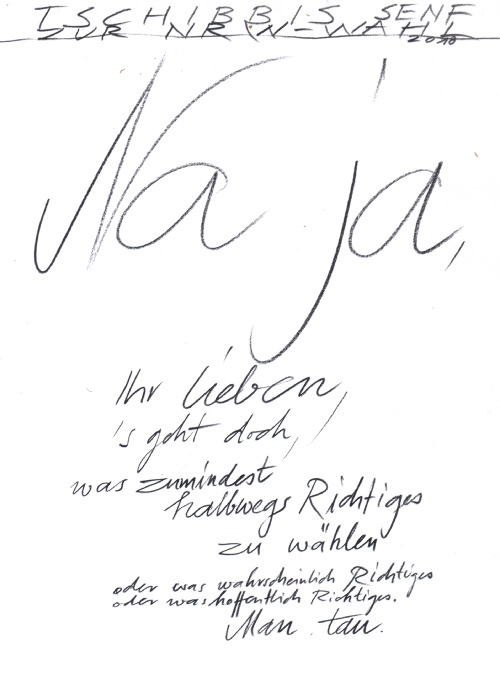 TSCHIBBIS SENF
ZUR NRW-WAHL
2010
Na ja,
Ihr lieben,
's geht doch,
was zumindest
halbwegs Richtiges
zu wählen
oder was wahrscheinlich Richtiges
oder was hoffentlich Richtiges.
Man tau.